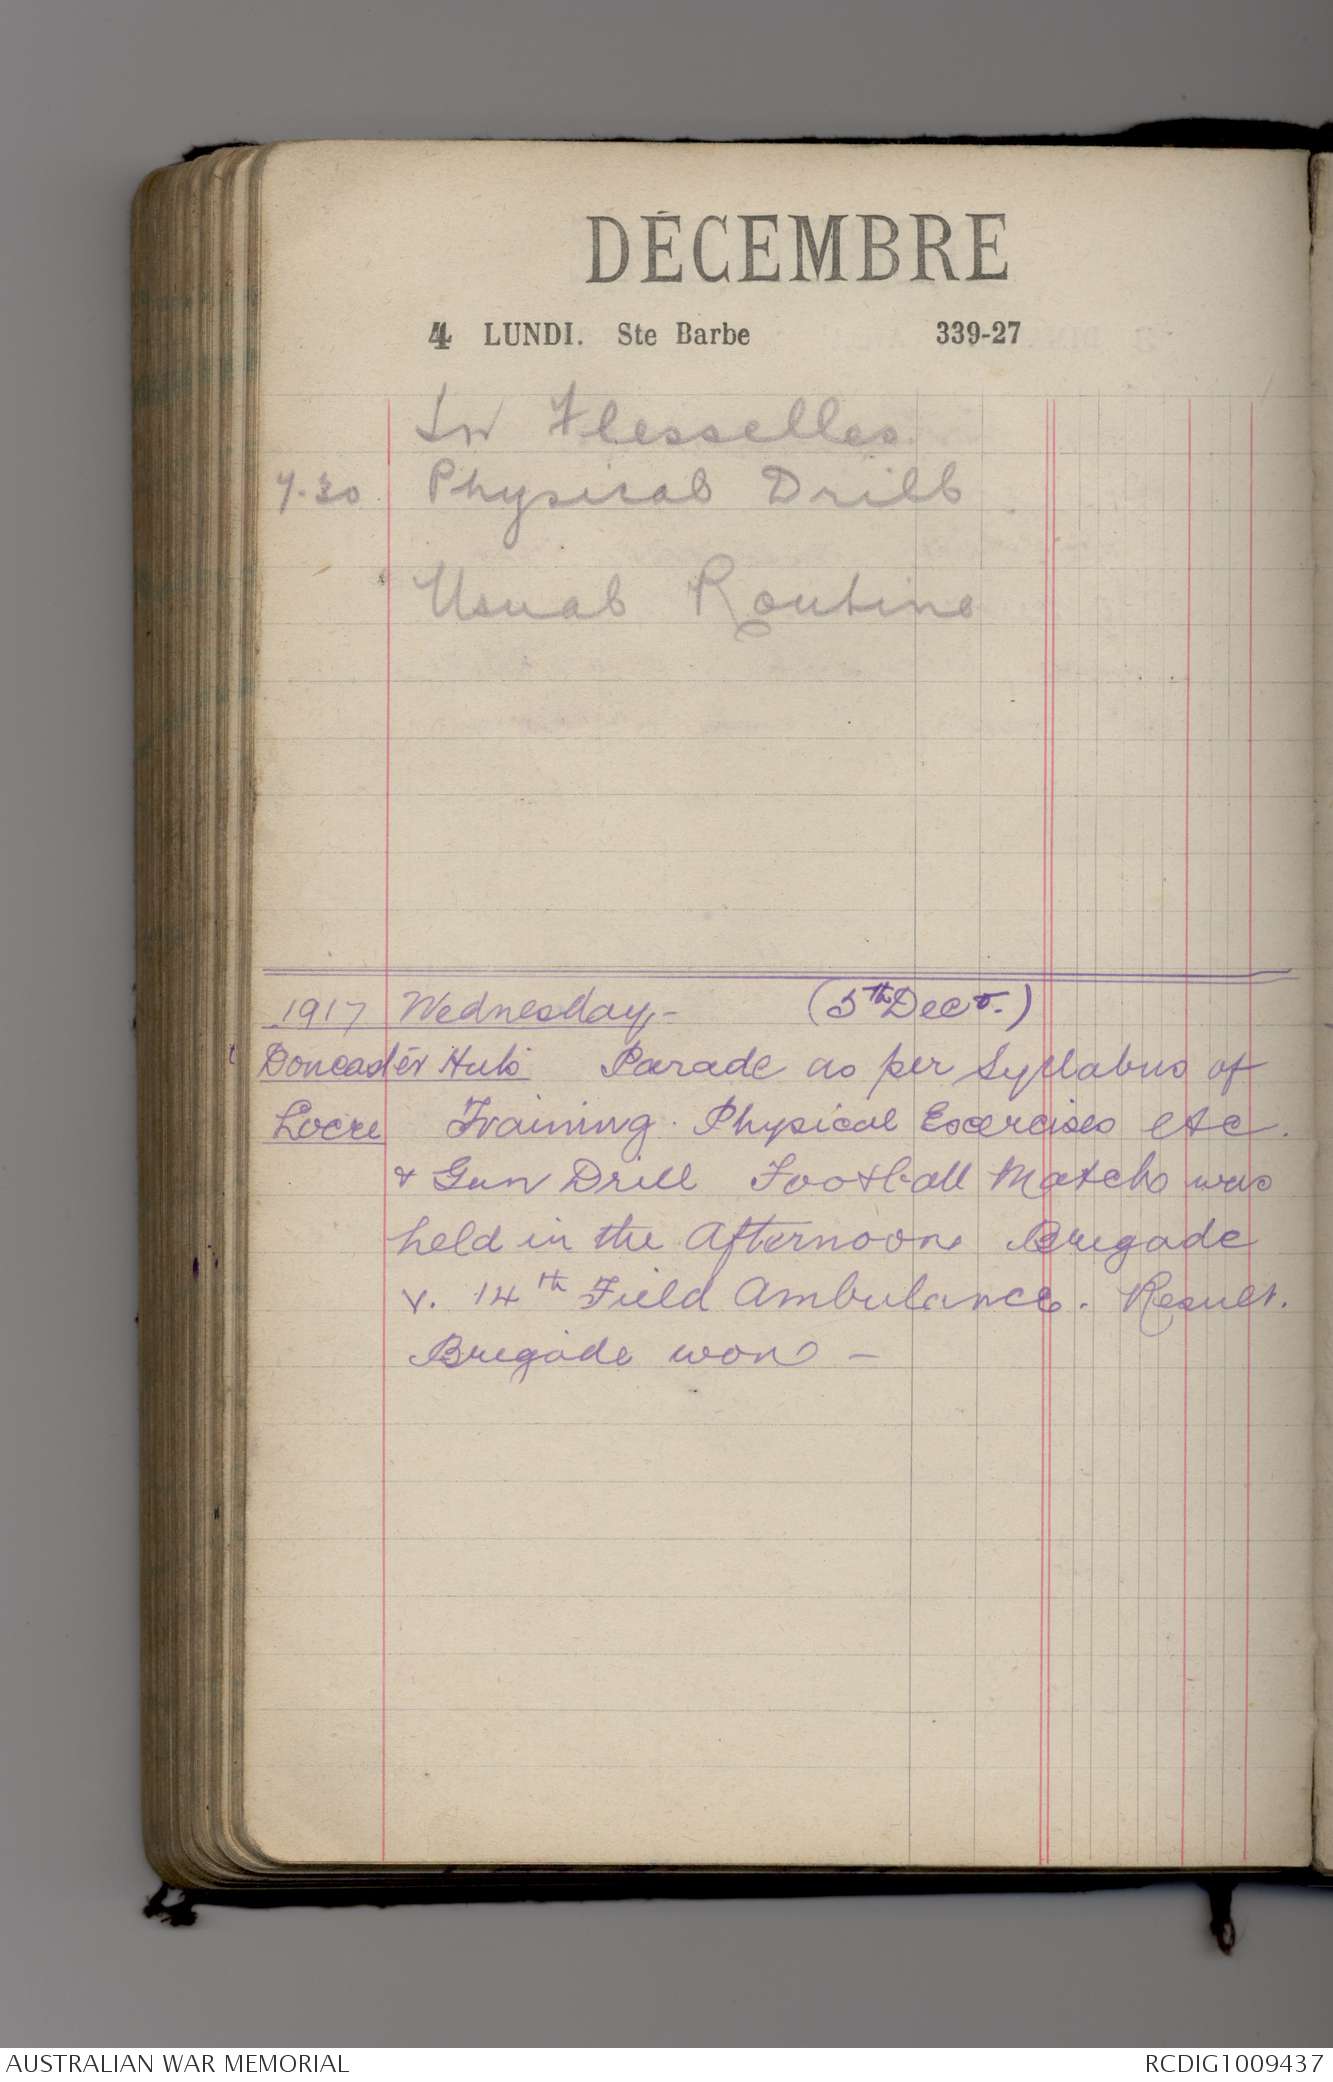 DÉCEMBRE
4 LUNDI. Ste Barbe 339-27
In Flesselles
7.30 Physical Drill
Usual Routine
1917 Wednesday - (5th Decr.)
Doncaster Huts Parade as per Syllabus of
Locre Training. Physical Exercises etc.
& Gun Drill Football Match was
held in the Afternoon Brigade
v. 14th Field Ambulance. Result.
Brigade won -
AUSTRALIAN WAR MEMORIAL RCDIG1009437